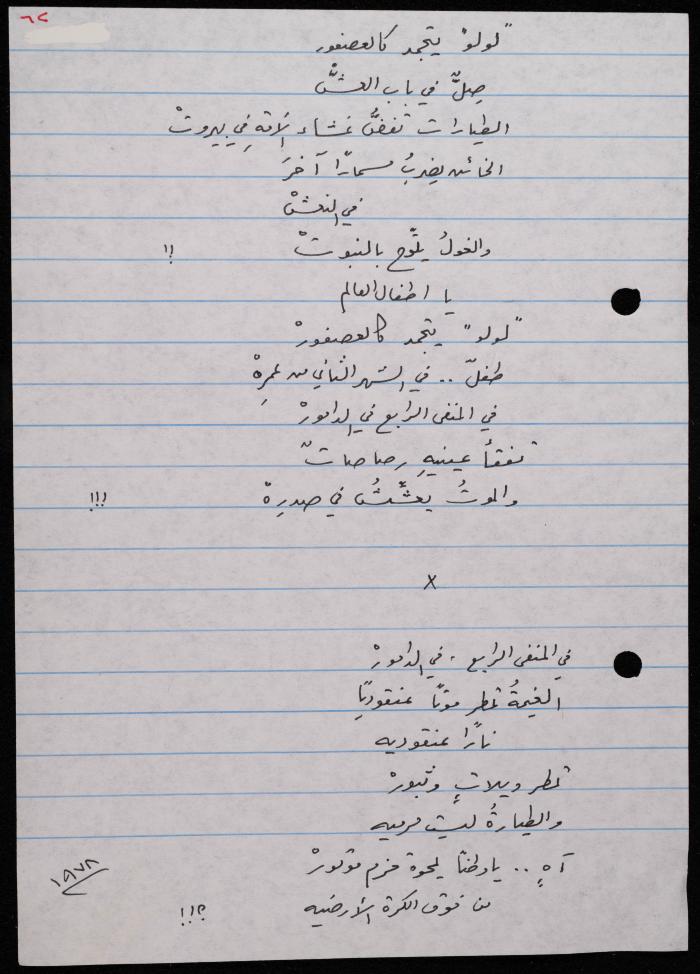 ٦٢
"لولو" يتجمد كالعصفور
صِلٌّ في باب العشّْ
الطيارات تفضُّ غشاء الأمةِ في بيروتْ
الخائن يضربُ مسمارًا آخرَ
في النعشْ
والغولُ يلوّح بالنبوتْ !!
يا اطفال العالم
"لولو" يتجمد كالعصفورْ
طفلٌ .. في الشهر الثاني من عمرِهْ
في المنفى الرابع في الدامورْ
تفقأ عينيهِ رصاصاتٌ
والموتُ يعشّشُ في صدرِهْ !!!
x
في المنفى الرابع . في الدامورْ
الغيمةُ تمطر موتًا عنقوديًا
نارًا عنقوديه
تمطر ويلاتٍ وثبورْ
والطيارةُ ليست مرميه
آهٍ .. يا وطنًا يمحوه مزم موتورْ
من فوق الكرة الأرضيه !!؟
١٩٧٨